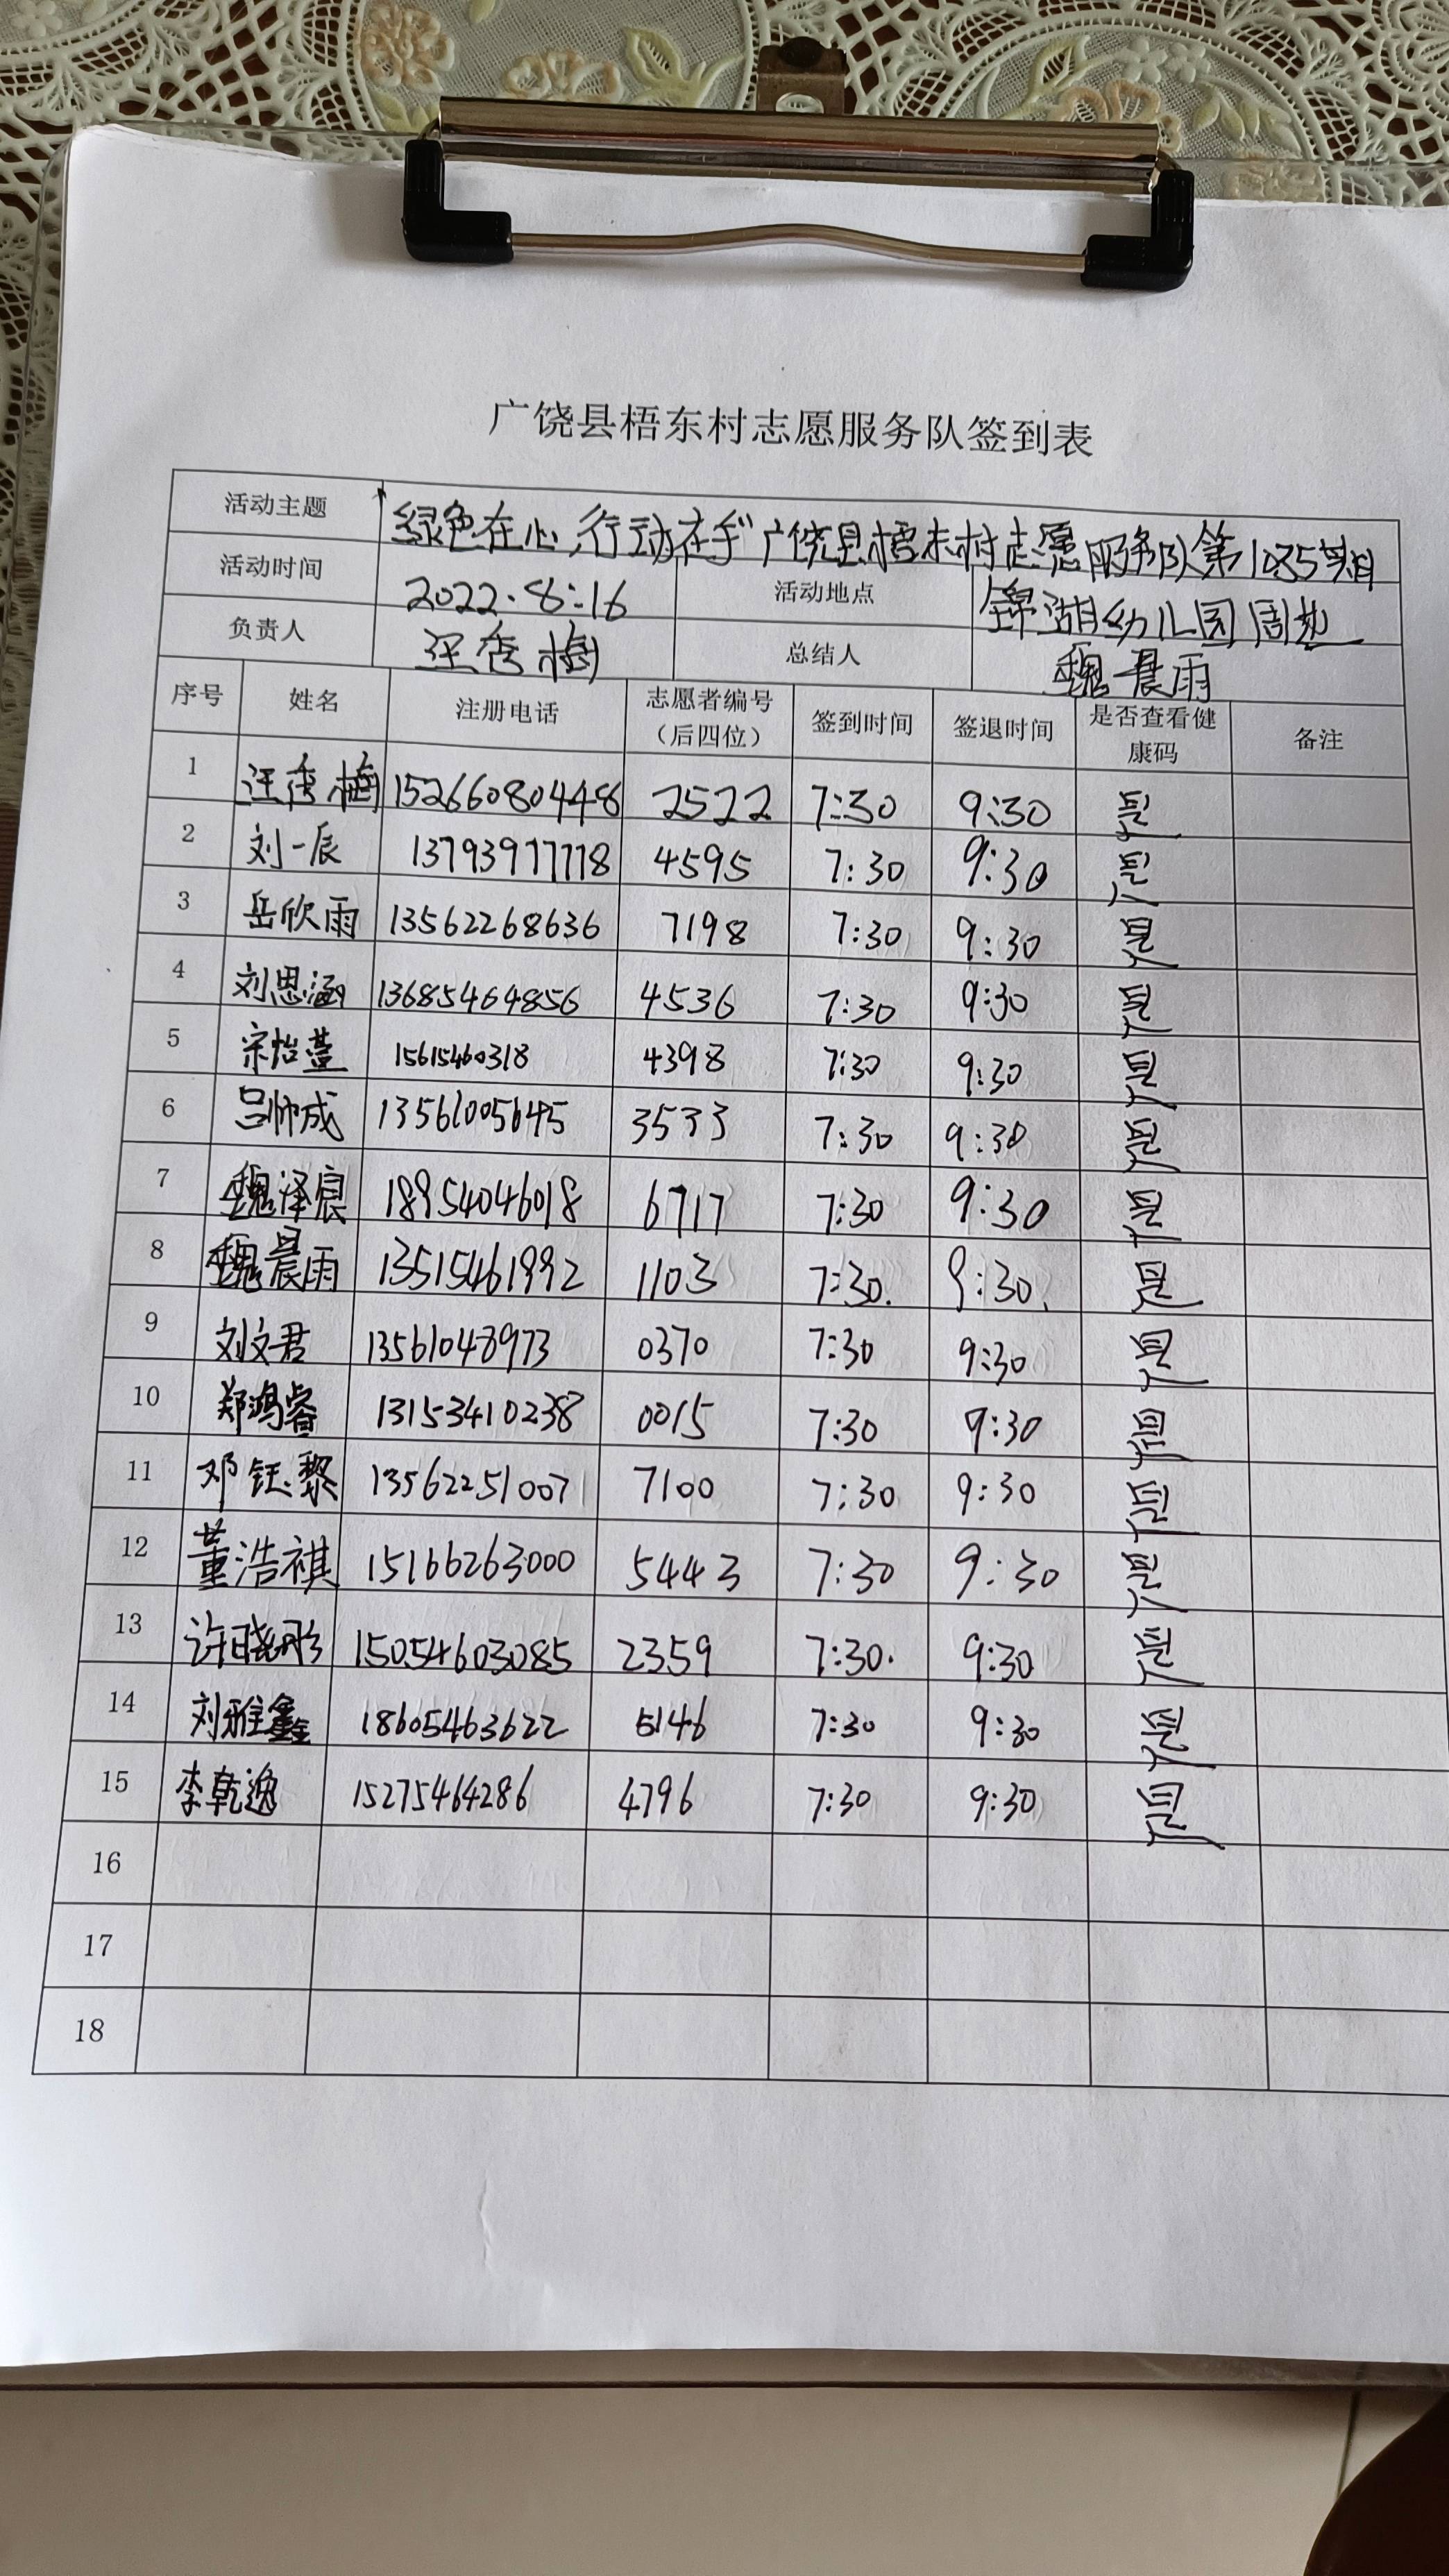 广饶县梧东村志愿服务队签到表
活动主题 "绿色在心,行动在手"广饶县梧东村志愿服务队第1035期
活动时间 2022.8:16 活动地点 锦湖幼儿园周边
负责人 汪秀梅 总结人 魏晨雨
序号 姓名 注册电话 志愿者编号（后四位） 签到时间 签退时间 是否查看健康码 备注
1 汪秀梅 15266080448 2522 7:30 9:30 是
2 刘一辰 13793977718 4595 7:30 9:30 是
3 岳欣雨 13562268636 7198 7:30 9:30 是
4 刘思涵 13685464856 4536 7:30 9:30 是
5 宋怡萱 15615460318 4398 7:30 9:30 是
6 吕帅成 13561005645 3533 7:30 9:30 是
7 魏泽宸 18954046018 6717 7:30 9:30 是
8 魏晨雨 13515461992 1103 7:30. 9:30. 是
9 刘文君 13561048973 0370 7:30 9:30 是
10 郑鸿睿 13153410238 0015 7:30 9:30 是
11 邓钰黎 13562251007 7100 7:30 9:30 是
12 董浩祺 15166263000 5443 7:30 9:30 是
13 许晓彤 15054603085 2359 7:30. 9:30 是
14 刘雅鑫 18605463622 5146 7:30 9:30 是
15 李乾逸 15275464286 4796 7:30 9:30 是
16
17
18